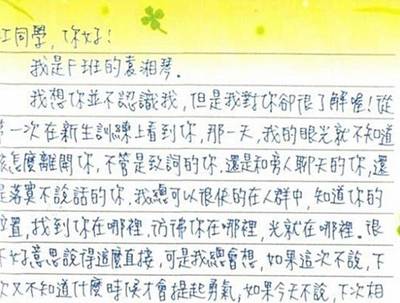 江同學,你好!
我是F班的袁湘琴。
我想你並不認識我,但是我對你卻很了解喔!從
第一次在新生訓練上看到你,那一天,我的眼光就不知道
該怎麼離開你,不管是致詞的你,還是和旁人聊天的你,還
是落寞不說話的你,我總可以很快的在人群中,知道你的
位置,找到你在哪裡,彷彿你在哪裡,光就在哪裡。很
不好意思說得這麼直接,可是我總會想,如果這次不說,下
次又不知道什麼時候才會提起勇氣,如果今天不說,下次相